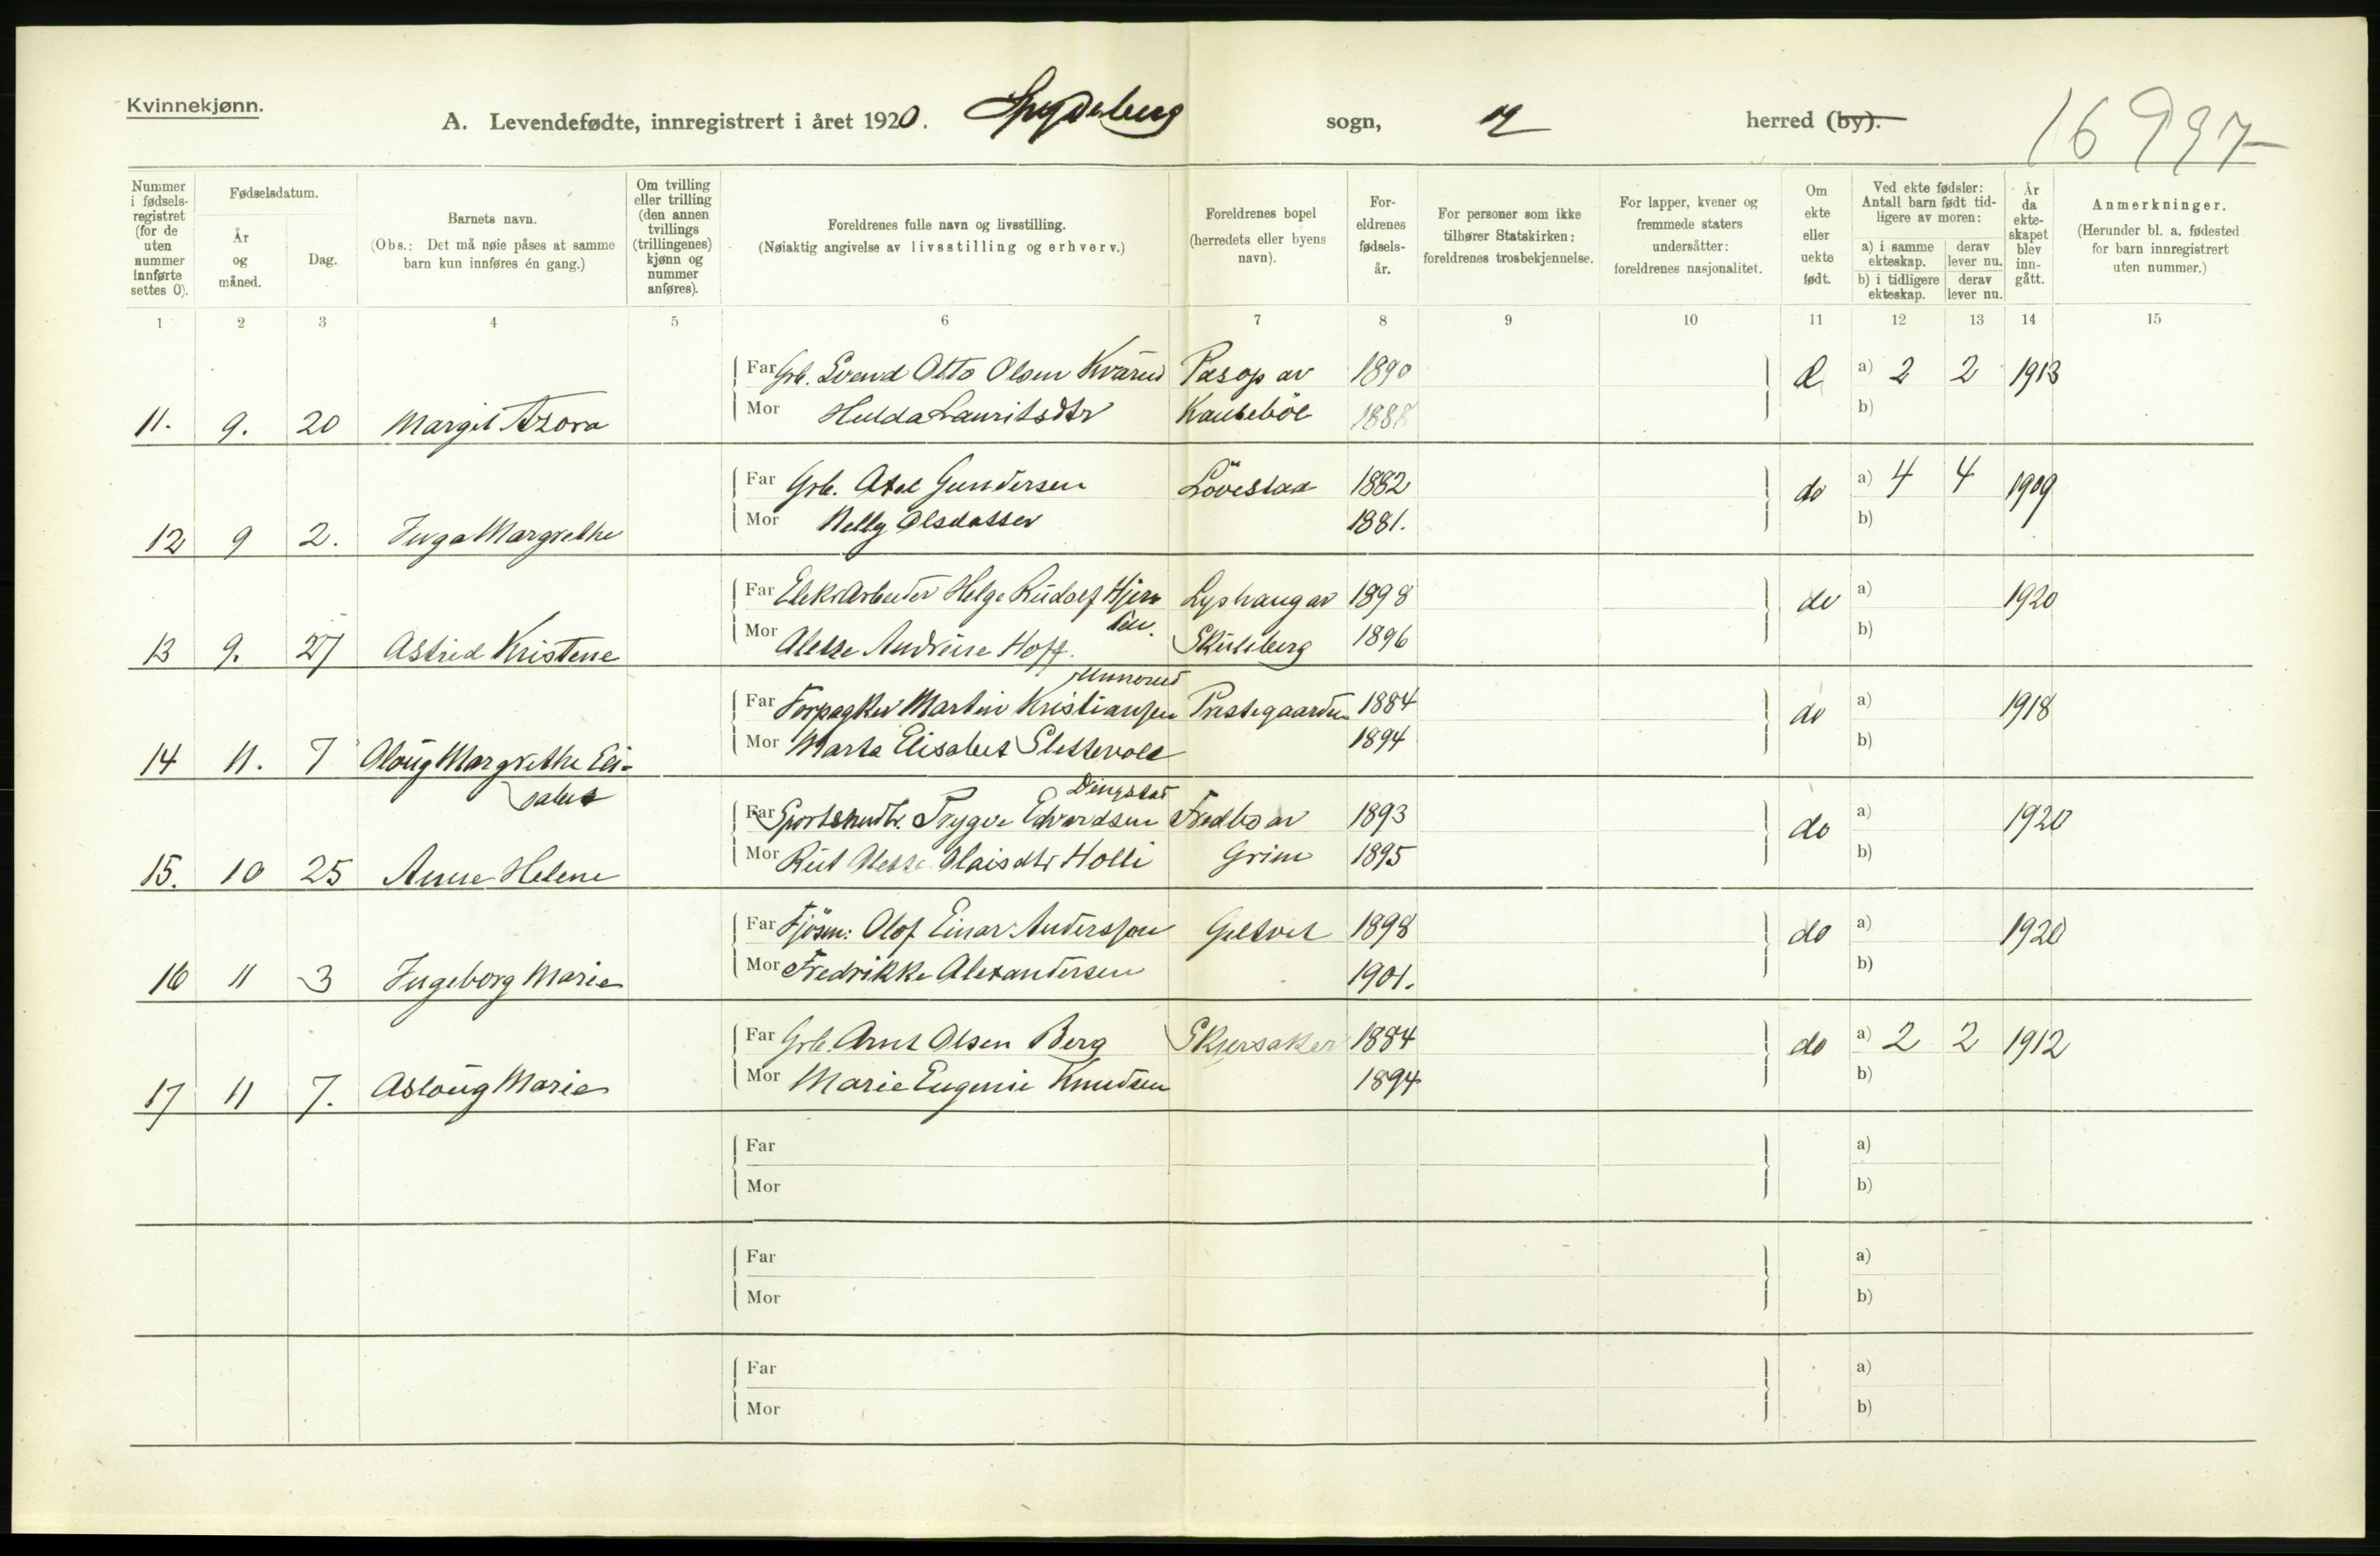 Kvinnekjønn.
A. Levendefødte, innregistrert i året 1920. Spydeberg sogn, herred (by).
16997
Nummer i fødselsregistret (for de uten nummer innførte settes 0).
Fødselsdatum.
År og måned.
Dag.
Barnets navn.
(Obs.: Det må nøie påses at samme barn kun innføres én gang.)
Om tvilling eller trilling (den annen tvillings (trillingenes) kjønn og nummer anføres).
Foreldrenes fulle navn og livsstilling.
(Nøiaktig angivelse av livsstilling og erhverv.)
Foreldrenes bopel (herredets eller byens navn).
Foreldrenes fødselsår.
For personer som ikke tilhører Statskirken: foreldrenes trosbekjennelse.
For lapper, kvener og fremmede staters undersåtter: foreldrenes nasjonalitet.
Om ekte eller uekte født.
Ved ekte fødsler: Antall barn født tidligere av moren:
a) i samme ekteskap. derav lever nu.
b) i tidligere ekteskap. derav lever nu.
År da ekteskapet blev inngått.
Anmerkninger.
(Herunder bl. a. fødested for barn innregistrert uten nummer.)
1 2 3 4 5 6 7 8 9 10 11 12 13 14 15
Far Grb. Svend Otto Olsen Kvärud Pasop av 1890 a) 2 2 1913
Mor Hulda Lauritsdtr 1888 b)
11. 9. 20 Margit
Far Grb. Axel Gundersen Lövestad 1882 do a) 4 4 1909
Mor Nelly Olsdatter 1881. b)
12 9 2. Inga Margrethe
Far Elekr.Arbeider Helge Rudolf 1898 do a) 1920
Mor Alette Andrine Hoff. 1896 b)
13 9. 27 Astrid Kristene
Far Forpagter Martin Kristiansen Prestegaarden 1884 do a) 1918
Mor Marta Elisabet Slettevold 1894 b)
14 11. 7 Aloug Margrethe Eli-
sabet
Dingstad
Far Trygve Edvardsen Fredbo av 1893 do a) 1920
Mor Rut Alette Olaisdtr Holli Grini 1895 b)
15. 10 25 Anne Helene
Far Fjösm: Olof Einar Andersson 1898 do a) 1920
Mor Fredrikke Alexandersen 1901. b)
16 11 3 Ingeborg Marie
Far Grb. Arnt Olsen Berg Skjersaker 1884 do a) 2 2 1912
Mor Marie Eugenie Knudsen 1894 b)
17 11 7. Asloug Marie
Far a)
Mor b)
Far a)
Mor b)
Far a)
Mor b)